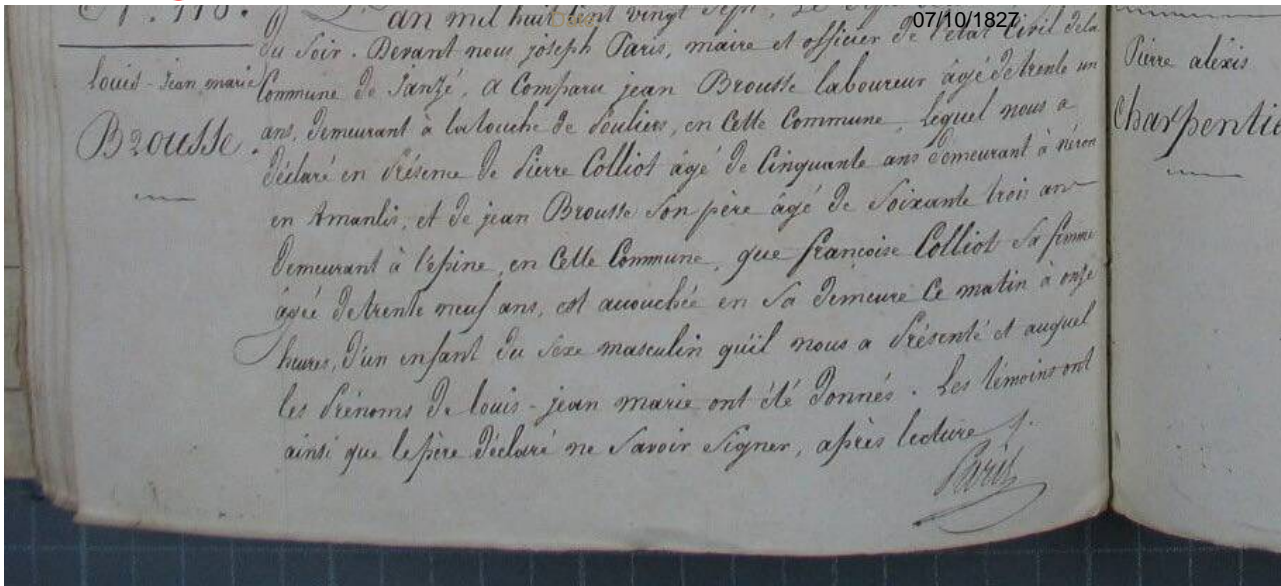 N°. 118.
an mil huit cent vingt sept, Le Sept
07/10/1827
du Soir. Devant nous joseph Paris, maire et officier de l'état Civil de la
Commune de Janzé, a Comparu jean Brousse laboureur âgé de trente un
ans, demeurant à la touche de Souliers, en Cette Commune, Lequel nous a
déclaré en présence de Pierre Colliot âgé de Cinquante ans demeurant à néron
en Amanlis, et de jean Brousse Son père âgé de Soixante trois ans
demeurant à l'epine, en Cette Commune, que francoise Colliot Sa femme
âgée de trente neuf ans, est accouchée en Sa demeure Ce matin à onze
heures, d'un enfant du Sexe masculin qu'il nous a présenté et auquel
les prénoms de louis - jean marie ont été donnés. Les témoins ont
ainsi que le père déclaré ne Savoir Signer, après lecture
Paris
louis - Jean marie
Brousse.
Pierre alexis
Charpentie